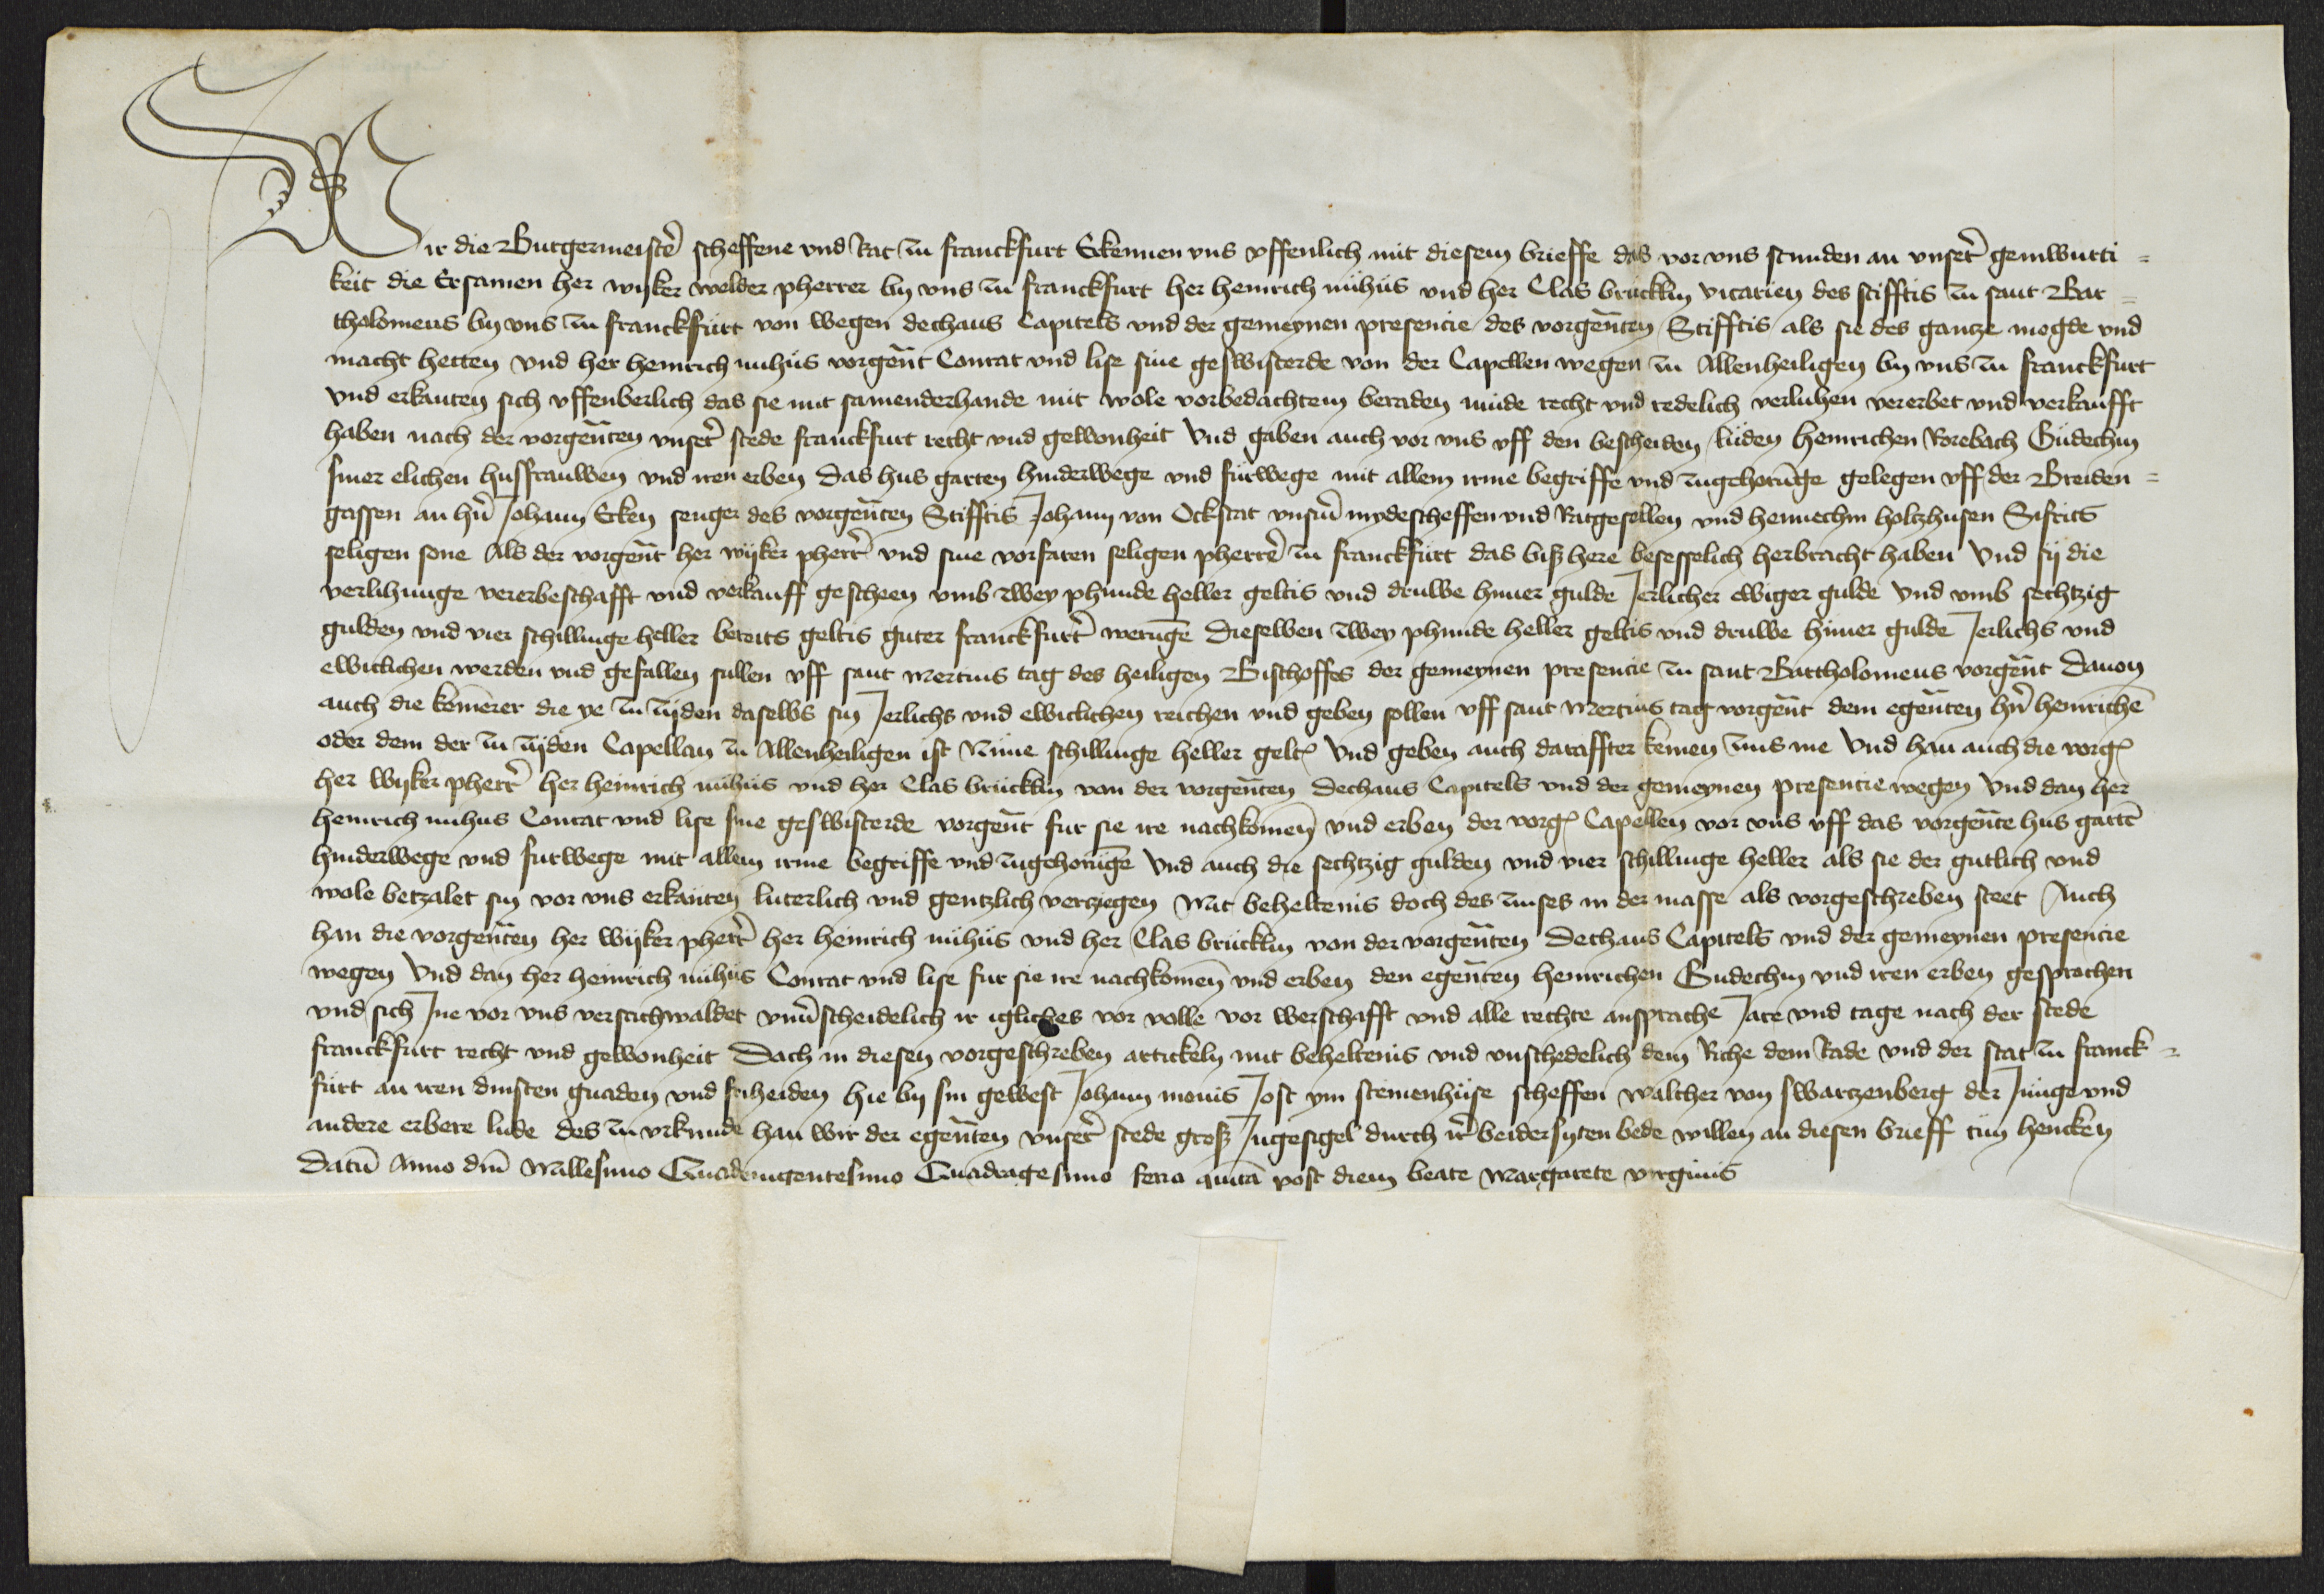 Wir die Burgermeistere scheffene vnd Rat zu franckfurt Erkennen vns vffenlich mit diesem brieffe das vor vns stunden an vnser geinwurti =
keit die Ersamen her wyker welder pherrer by vns zu franckfurt her heinrich nühüs vnd her Clas brücklin vicarien des stifftis zu sant Bar =
tholomeus by vns zu franckfürt von wegen dechans Capitels vnd der gemeynen presencie des vorgenten Stifftis als sie des gantze mogde vnd
macht hetten vnd her heinrich nuhüs vorgent Conrat vnd lise sine geswisterde von der Capellen wegen zu Allenheiligen by vns zu franckfurt
vnd erkanten sich vffenberlich das sie mit samenderhande mit wole vorbedachtem beraden müde recht vnd redelich verluhen vererbet vnd verkaufft
haben nach der vorgenten vnser stede franckfurt recht vnd gewonheit vnd gaben auch vor vns vff den bescheiden lüden heinrichen Rorebach Güdechin
siner elichen husfrauwen vnd iren erben das hus garten hinderwege vnd fürwege mit allem irme begriffe vnd zugehorunge gelegen vff der Breiden =
gassen an hern Johann Ecken senger des vorgenten Stifftis Johann von Ockstat vnserm mydescheffen vnd Ratgesellen vnd hennechin holtzhusen Sifrits
seligen sone Als der vorgent her wyker pherrer vnd sine vorfaren seligen pherrer zu franckfürt das biß here besesselich herbracht haben vnd sij die
verlihunge vererbeschafft vnd verkauff gescheen vmb zwey phunde heller geltis vnd druwe hüner gulde Jerlicher ewiger gulde vnd vmb sechtzig
gulden vnd vier schillinge heller bereits geltis guter franckfurter werunge Dieselben zwey phunde heller geltis vnd druwe hüner gulde Jerlichs vnd
ewiclichen werden vnd gefallen sullen vff sant mertins tag des heiligen Bischoffes der gemeynen presencie zu sant Bartholomeus vorgent Dauon
auch die kemerer die ye zu zijden daselbs sin Jerlichs vnd ewiclichen reichen vnd geben sollen vff sant mertins tag vorgent dem egenten hern heinrichen
oder dem der zu zijden Capellan zu Allenheiligen ist Nüne schillinge heller gelts vnd geben auch daraffter keinen zins me Vnd han auch die vorg
her wyker pherrer her heinrich nühüs vnd her Clas brücklin von der vorgenten Dechans Capitels vnd der gemeynen presencie wegen Vnd dan her
heinrich nuhus Conrat vnd lise sine geswisterde vorgent fur sie ire nachkomen vnd erben der vorg Capellen vor vns vff das vorgente hus garten
hinderwege vnd furwege mit allem irme begriffe vnd zugehorunge Vnd auch die sechtzig gulden vnd vier schillinge heller als sie der gutlich vnd
wole betzalet sin vor vns erkanten luterlich vnd gentzlich vertziegen Mit beheltenis doch des zinses in der masse als vorgeschreben steet Auch
han die vorgenten her wyker pherrer her heinrich nühüs vnd her Clas brücklin von der vorgenten Dechans Capitels vnd der gemeynen presencie
wegen Vnd dan her heinrich nühüs Conrat vnd lise fur sie ire nachkomen vnd erben den egenten heinrichen Gudechin vnd iren erben gesprochen
vnd sich Ine vor vns verstichwaldet vnuerscheidelich ir igliches vor volle vor werschafft vnd alle rechte ansprache Jare vnd tage nach der stede
franckfurt recht vnd gewonheit Doch in diesen vorgeschreben artickeln mit beheltenis vnd vnschedelich dem Riche dem Rade vnd der stat zu franck =
fürt an iren dinsten gnaden vnd friheiden hie by sin gewest Johann monis Jost ym steinenhüse scheffen walther von swartzenberg der Junge vnd
andere erbere lude des zu vrkunde han wir der egenten vnser stede groß Ingesigel durch ir beidersyten bede willen an diesen brieff tun hencken
Datum Anno dm Millesimo Quadringentesimo Quadragesimo feria quinta post diem beate Margarete virginis